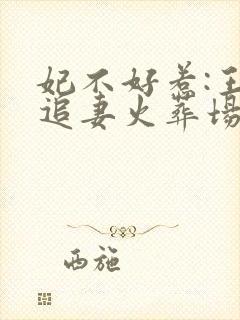 妃不好惹:王
追妻火葬场
西施